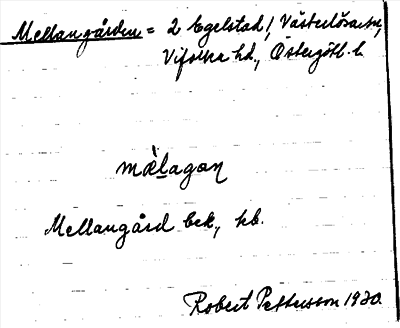 Mellangården = 2 Egelstad, Västerlösa sn,
Vifolka hd., Östergötl. l.
mæ̀lagan
Mellangård bek, kb.
Robert Pettersson 1930